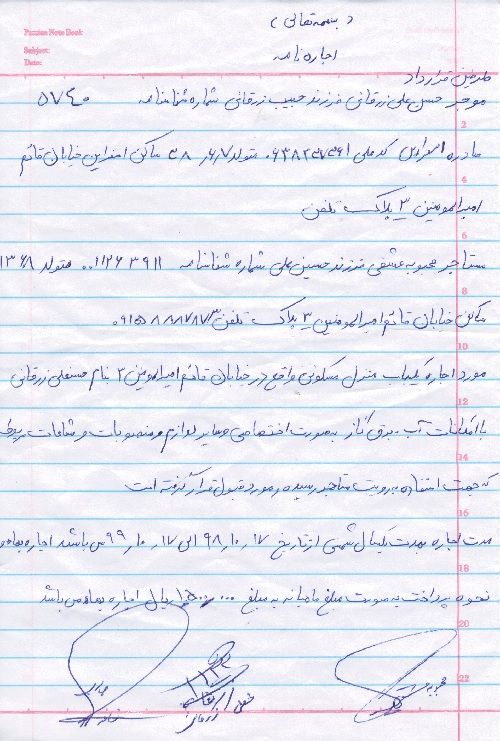 Parsian Note Book
Subject:
Date:
(بسمه تعالی)
اجاره نامه
طرفین قرارداد
موجر حسن علی زرقانی فرزند حبیب زرقانی شماره شناسنامه ۵۷۴۰
صادره اسفراین کد ملی متولد ۳۸٫۶٫۷ ساکن اسفراین خیابان قائم
امیرالمومنین ۳ پلاک تلفن
مستاجر محبوبه عشقی فرزند حسین علی شماره شناسنامه ۰۰۱۱۲۶۳۹۱۱ متولد ۱۳۶۸
مکان خیابان قائم امیرالمومنین ۳ پلاک تلفن
مورد اجاره یکباب منزل مسکونی واقع در خیابان قائم امیرالمومنین ۳ بنام حسنعلی زرقانی
با امکانات آب - برق گاز بصورت اختصاصی و سایر لوازم و منصوبات و مشاعات مربوطه
که جهت استفاده به رویت مستاجر رسیده و مورد قبول قرار گرفته است
مدت اجاره بمدت یکسال شمسی از تاریخ ۹۸٫۱۰٫۱۷ الی ۹۹٫۱۰٫۱۷ می باشد اجاره بهاء و
نحوه پرداخت به صورت مبلغ ماهیانه به مبلغ ریال اجاره بهاء می باشد
2
4
6
8
10
12
14
16
18
20
22